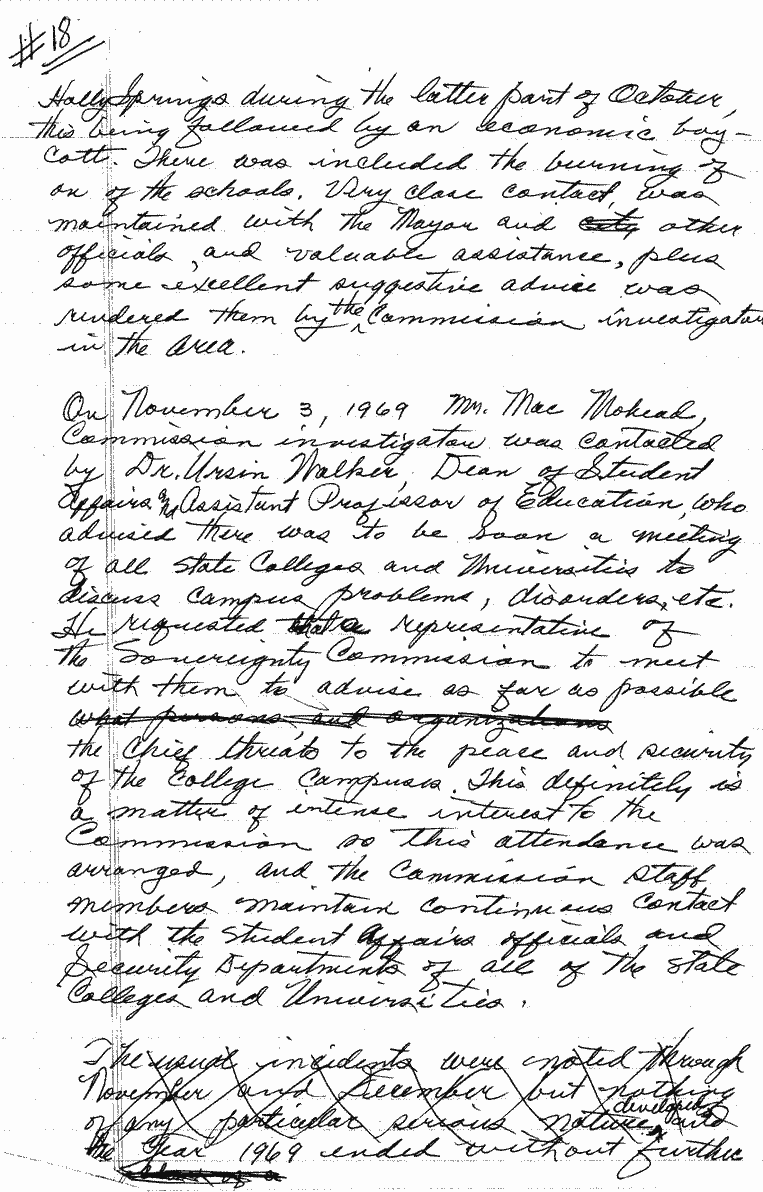 #18
Holly Springs during the latter part of October,
this being followed by an economic boy-
cott. There was included the burning of
on of the schools. Very close contact, was
maintained with the Mayor and city other
officials, and valuable assistance, plus
some excellent suggestive advice was
rendered them by the Commission investigator
in the area.
On November 3, 1969 Mr. Mac Mohead,
Commission investigator was contacted
by Dr. Ursin Walker, Dean of Student
Affairs and Assistant Professor of Education, who
advised there was to be soon a meeting
of all State Colleges and Universities to
discuss campus problems, disorders, etc.
He requested that a representative of
the Sovereignty Commission to meet
with them to advise as far as possible
what persons and organizations
the chief threats to the peace and security
of the College Campuses. This definitely is
a matter of intense interest to the
Commission so this attendance was
arranged, and the Commission Staff
members maintain continuous contact
with the Student Affairs officials and
Security Departments of all of the State
Colleges and Universities.
The usual incidents were noted through
November and December but nothing
of any particular serious nature developed and
the Year 1969 ended without further